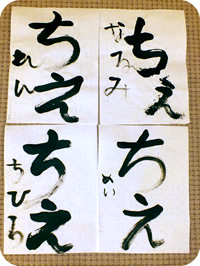 ちえ
れん
ちえ
なるみ
ちえ
ちひろ
ちえ
めい